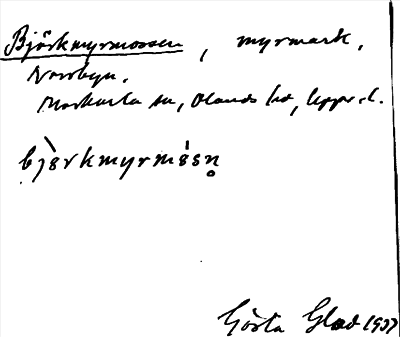 Björkmyrmossen, myrmark,
Norrbyn.
Markarla sn, Olands hd, Upps. l.
bjö̀rkmyrmósn̥
Gösta Glad 1937